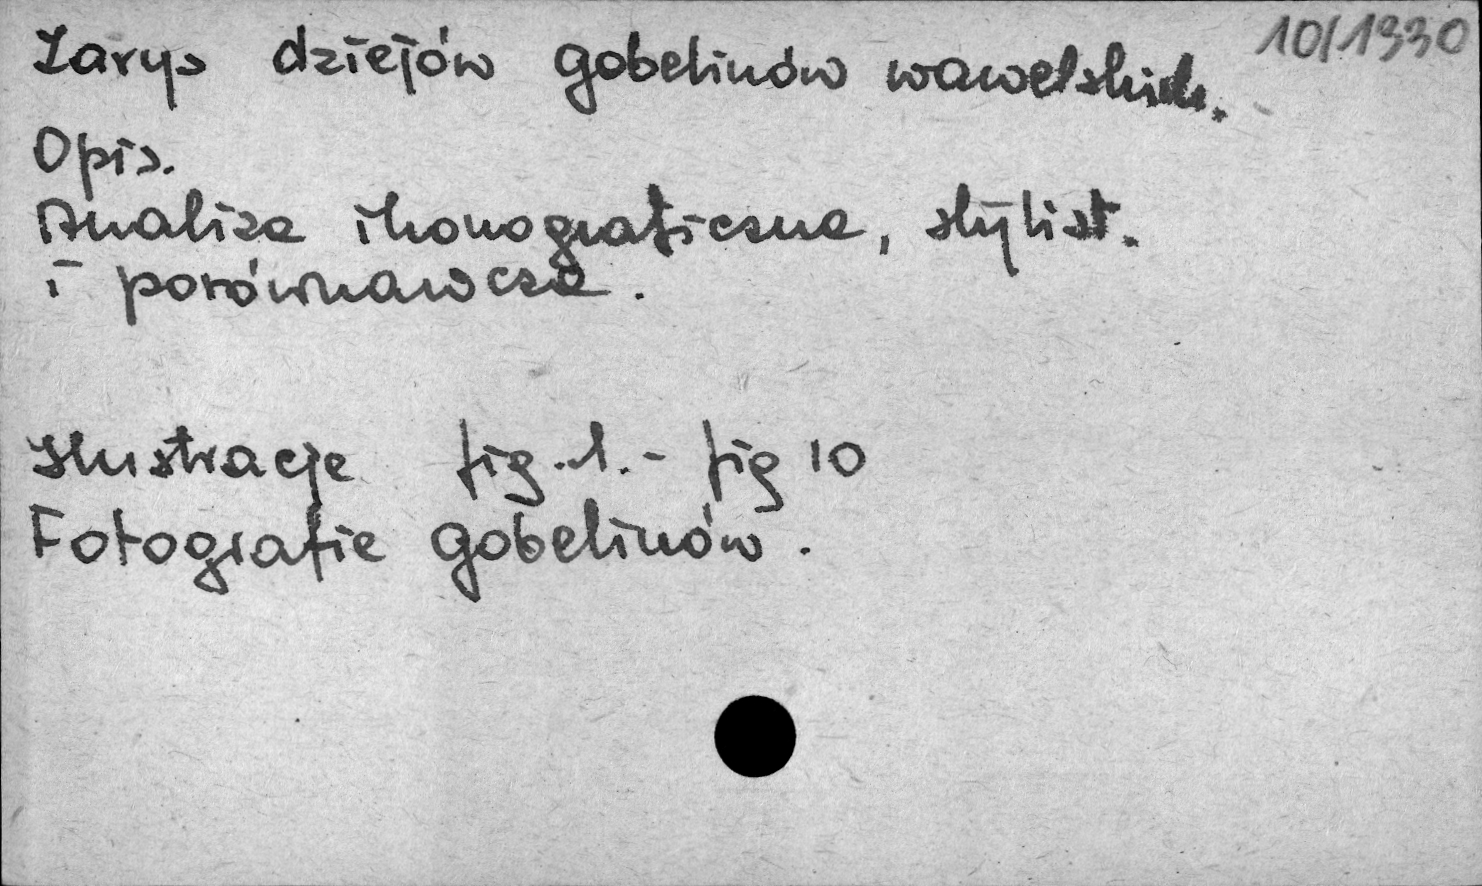 10/1930
Zarys dziejów gobelinów wawelskich.
Opis.
Analiza ikonograficzna, stylist.
i porównawcza.
Ilustracje fig. 1. - fig 10
Fotografie gobelinów.